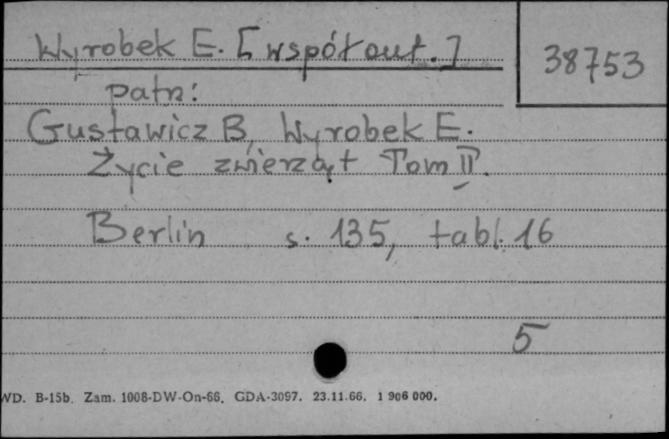 Wyrobek E. [współaut.]
38753
patrz:
Gustawicz B, Wyrobek E.
Życie zwierząt Tom II.
Berlin s. 135, tabl. 16
5
WD. B-15b. Zam. 1008-DW-On-66. GDA-3097. 23.11.66. 1 906 000.